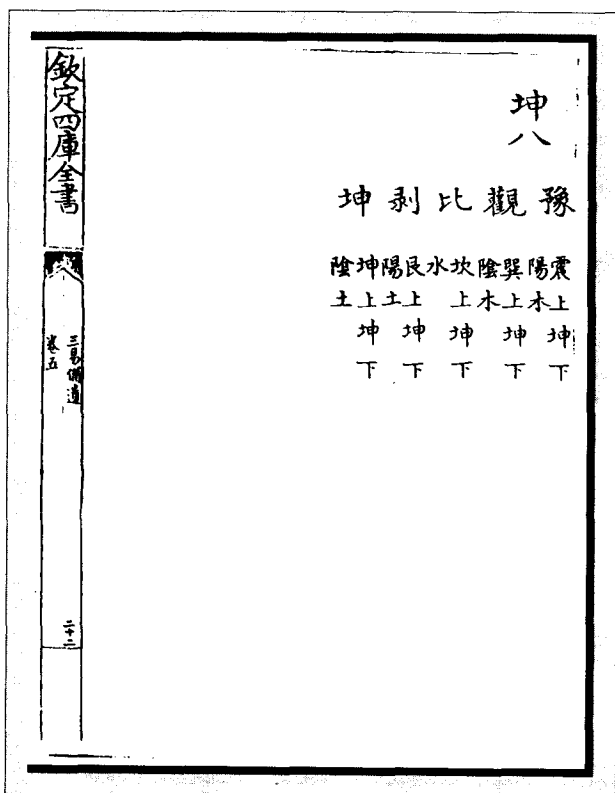 坤八
豫
震上坤下
陽木
觀
巽上坤下
陰木
比
坎上坤下
水
剥
艮上坤下
陽土
坤
坤上坤下
陰土
欽定四庫全書
三易備遺
卷五
二十二